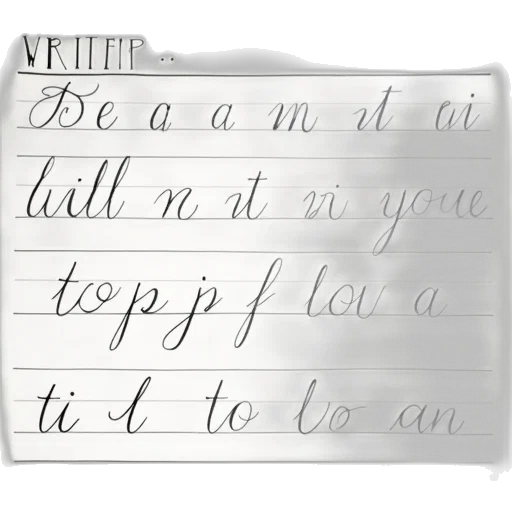 WRITFIP
De a a m it ai
will n it vi youe
top p f lov a
ti l to lo an